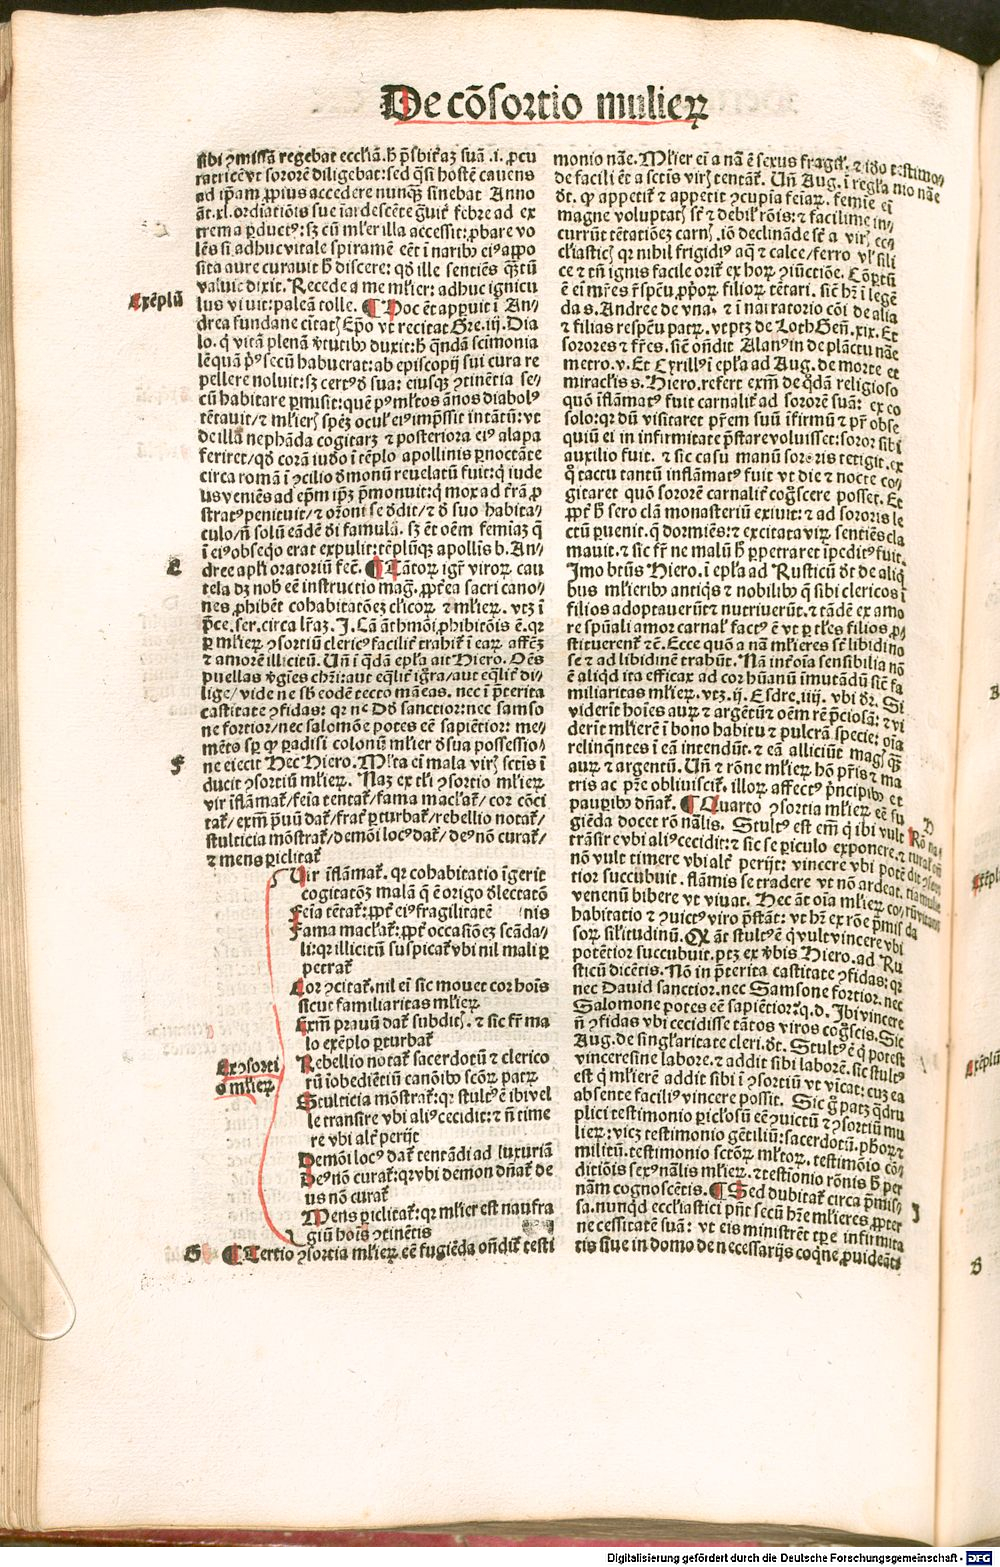 De cōsortio mulieꝝ
sibi ꝯmissā regebat eccl'iā. h̄ p̄sbit'aꝫ suā .i. ꝓcu
ratricē vt sororē diligebat: sed q̄si hostē cauens
ad ip̄am ꝓpius accedere nunqꝫ sinebat Anno
trema ꝑductꝰ: sꝫ cū ml'er illa accessit: ꝓbare vo
lēs si adhuc vitale spiramē eēt ī narib' eiꝰ appo
sita aure curauit h̄ discere: qd̄ ille sentiēs
valuit dixit. Recede a me ml'ier: adhuc ignicu
Exēplū
lus viuit: paleā tolle. ¶ Hoc ēt apꝑuit ī An-
drea fundane ciuitatꝭ Ep̄o vt recitat Gre. iij. Dia
lo. q̇ vitā plenā v̓tutib' duxit: h̄ qn̄dā scimonia
lē quā pͥꝰ secū habuerat: ab episcopij sui cura re
pellere noluit: sꝫ certꝰ d̓ sua: eiusqꝫ ꝯtinētia se-
cū habitare ꝑmisit: quē pꝰ ml'tos ānos diabolꝰ
tētauit/ et ml'ierꝭ spēꝫ ocul' eiꝰ imp̄ssit intātū: vt
de illa nephāda cogitaꝝ & posteriora eiꝰ alapa
feriret/ qd̄ corā iud̓o ī tēplo apollinis ꝑnoctāte
circa romā ī ꝯcilio d̓monū reuelatū fuit: q̇ iude
us veniēs ad ep̄m ip̄ꝫ p̄monuit: q̇ mox ad t̓rā ꝓ
stratꝰ penituit/ & or̄oni se d̓dit/ & d̓ suo habita-
culo/ n̄ solū eādē d̓i famulā. sꝫ ēt oēm femiaꝫ q̄
ī eiꝰ obseq̇o erat expulit: tēplūqꝫ apoll'is b. An-
E
dree apl'i oratoriū fec̄. ¶ Tātoꝝ igr̄ viroꝝ cau
tela dꝫ nob' eē instructio mag̓. ꝓpt'ea sacri cano-
nes ꝓhibēt cohabitatōeꝫ cl'icoꝝ & ml'ieꝝ. vtꝫ ī
p̄ce. ser. circa lr̄aꝫ. J. Cā āt hmōi ꝓhibitōis ē. qr
ꝑ ml'ieꝝ ꝯsortiū clericꝰ facilit' trahit' ī eaꝝ affēꝫ
& amorē illicitū. Un̄ ī q̄dā epl'a ait Hiero. Oēs
puellas v̓gīes chr̄i: aut eq̄lit' igr̄a/ aut eq̄lit' di-
lige/ vide ne sb̓ eodē tecto māeas. nec ī p̄terita
castitate ꝯfidas: qr ne Dd̄ sanctior: nec samso
ne fortior/ nec salomōe potes eē sapiētior: me-
mēto sꝑ qꝫ padisi colonū ml'ier d̓ sua possessio-
F
ne eiecit Hec Hiero. Ml'ta ei mala virꝭ sctis ī
ducit ꝯsortiū ml'ieꝝ. Naꝫ ex tl'i ꝯsortio ml'ieꝝ
vir īflāmat'/ feīa tentat'/ fama macl'at/ cor cōci
tat'/ exm̄ p̄uū dat'/ frat' ꝑturbat'/ rebellio notat'/
stulticia mōstrat'/ demōi locꝰ dat'/ deꝰ nō curat'/
& mens ꝑiclitat'
Vir īflāmat'. qr cohabitatio īgerit
cogitatōꝫ malā q̄ ē origo d̓lectatō
nis
Feīa tētat': ꝓpt' eiꝰ fragilitatē
Fama macl'at': ꝓpt' occasiōeꝫ scāda-
li: qr illicitū suspicat' vbi nil mali ꝑ
petrat'
Cor ꝯcitat'. nil ei sic mouet cor hoīs
sicut familiaritas ml'ieꝝ
Exm̄ prauū dat' subditꝭ. & sic fr̄ ma
lo exēplo ꝑturbat'
Ex ꝯsorti
o ml'ieꝝ
Rebellio notat' sacerdotū & clerico
rū īobediētiū canōib' scōꝝ patꝝ
Stulticia mōstrat': qr stultꝰ ē ibi vel
le transire vbi aliꝰ cecidit: & n̄ time
re vbi alt' perijt
Demōi locꝰ dat' tentādi ad luxuriā
Deꝰ nō curat': qr vbi demon dn̄at' de
us nō curat'
Mens ꝑiclitat': qr ml'ier est naufra
giū hoīs ꝯtinētis
G
¶ Tertio ꝯsortia ml'ieꝝ eē fugiēda on̄dit' testi
monio nāe. Ml'ier ei a nā ē sexus fragil'. & iō
testimo-
nio nāe
de facili ēt a sctis virꝭ tentat'. Un̄ Aug. ī regl'a
magne voluptatꝭ st̄ & debil' rōis: & facilime in-
currūt tētatōeꝫ carnꝭ. iō declināde st̄ a virꝭ ecc
cl'iasticꝭ qr nihil frigidiꝰ aq̄ & calce/ ferro vl' sili
ce & tn̄ ignis facile orit' ex hoꝝ ꝯiūctiōe. Cōꝑtū
ē ei mr̄es fr̄ spēu ꝓpꝓꝝ filioꝝ tētari. sic hr̄ ī legē
da s. Andree de vna. & ī narratorio cōi de alia
& filias respēu patꝝ. vt ptꝫ de Loth Gen̄. xix. Et
sorores & fr̄es. sic on̄dit Alanꝰ in de plāctu nāe
metro. v. Et Cyrillꝰ ī epl'a ad Aug. de morte et
miracl'is s. Hiero. refert exm̄ de q̄dā religioso
quō īflāmatꝰ fuit carnalit' ad sororē suā: ex eo
solo: qr dū visitaret pr̄em suū īfirmū & pr̄ obse
quiū ei in infirmitate p̄stare voluisset: soror sibi
auxilio fuit. & sic casu manū sororis tetigit. ex
q̇ tactu tantū inflāmatꝰ fuit vt die & nocte co-
gitaret quō sororē carnalit' cog̓scere posset. Et
ꝓpt' h̄ sero clam monasteriū exiuit: & ad sororis le
ctū ꝑuenit. q̄ dormiēs: & excitata virꝝ sentiēs cla
mauit. & sic fr̄ ne malū h̄ ꝑpetraret īpeditꝰ fuit.
Jmo btūs Hiero. ī epl'a ad Rusticū d̓t de aliq̇
bus ml'ierib' antiq̇s & nobilib' q̄ sibi clericos ī
filios adoptauerūt & nutriuerūt. & tādē ex amo
re spūali amor carnal' factꝰ ē vt ꝑ tl'es filios ꝓ-
stituerent' &c̄. Ecce quō a nā ml'ieres st̄ libidino
se & ad libidinē trahūt. Nā int' oīa sensibilia nō
ē aliqd̄ ita efficax ad cor hūanū īmutādū sic fa
miliaritas ml'ieꝝ. vtꝫ .ij. Esdre. iiij. vbi d̓r. Si
viderīt hoīes auꝝ & argētū & oēm rē p̄ciosā: & vi
derīt ml'ierē ī bono habitu & pulcrā specie: oīa
relinqn̄tes ī eā intendūt. & eā alliciūt magꝭ qꝫ
auꝝ & argentū. Un̄ & rōne ml'ieꝝ hō pr̄is & ma
tris ac pr̄ie obliuiscit'. illoꝝ affectꝰ p̄ncipib' et
paurib' dn̄at'. ¶ Quarto ꝯsortia ml'ieꝝ eē fu
H
giēda docet rō nālis. Stultꝰ est em̄ q̇ ibi vult
trāsire vbi aliꝰ cecidit: & sic se ꝑiculo exponere. &
nō vult timere vbi alt' perijt: vincere vbi potē
tior succubuit. flāmis se tradere vt nō ardeat.
venenū bibere vt viuat. Hec āt oīa ml'ieꝝ co-
habitatio & ꝯuictꝰ viro p̄stāt: vt hr̄ ex rōe p̄mis
saꝝ sil'itudinū. Qꝫ āt stultꝰ ē q̇ vult vincere vbi
potētior succubuit. ptꝫ ex v̓bis Hiero. ad Ru
sticū dicētis. Nō in p̄terita castitate ꝯfidas: qr
nec Dauid sanctior. nec Samsone fortior. nec
Salomone potes eē sapiētior: q. d. Ibi vincere
n̄ ꝯfidas vbi cecidisse tātos viros cog̓scis. Sic
Aug. de singl'aritate cleri. d̓t. Stultꝰ ē q̇ potest
vincere sine labore. & addit sibi laborē. sic stultꝰ
est q̇ ml'ierē addit sibi ī ꝯsortiū vt vīcat: cuꝫ ea
absente faciliꝰ vincere possit. Sic g̊ patꝫ q̄dru
plici testimonio ꝑicl'osū eē ꝯuictū & ꝯsortiū mu
lieꝝ: vicꝫ testimonio gētiliū: sacerdotū. ꝓbōꝝ &
militū. testimonio sctōꝝ ml'toꝝ. testimōio cō-
ditiōis sexꝰ nālis ml'ieꝝ. & testiōio rōnis h̄ ꝑ ex
nām cognoscētis. ¶ Sed dubitat' circa p̄mis-
J
sa. nunqd̄ eccl'iastici pn̄t secū hr̄e ml'ieres ꝓpter
necessitatē suā: vt eis ministrēt tꝑe infirmita
tis siue in domo de necessarijs coq̄ne ꝓuideāt
Digitalisierung gefördert durch die Deutsche Forschungsgemeinschaft - DFG